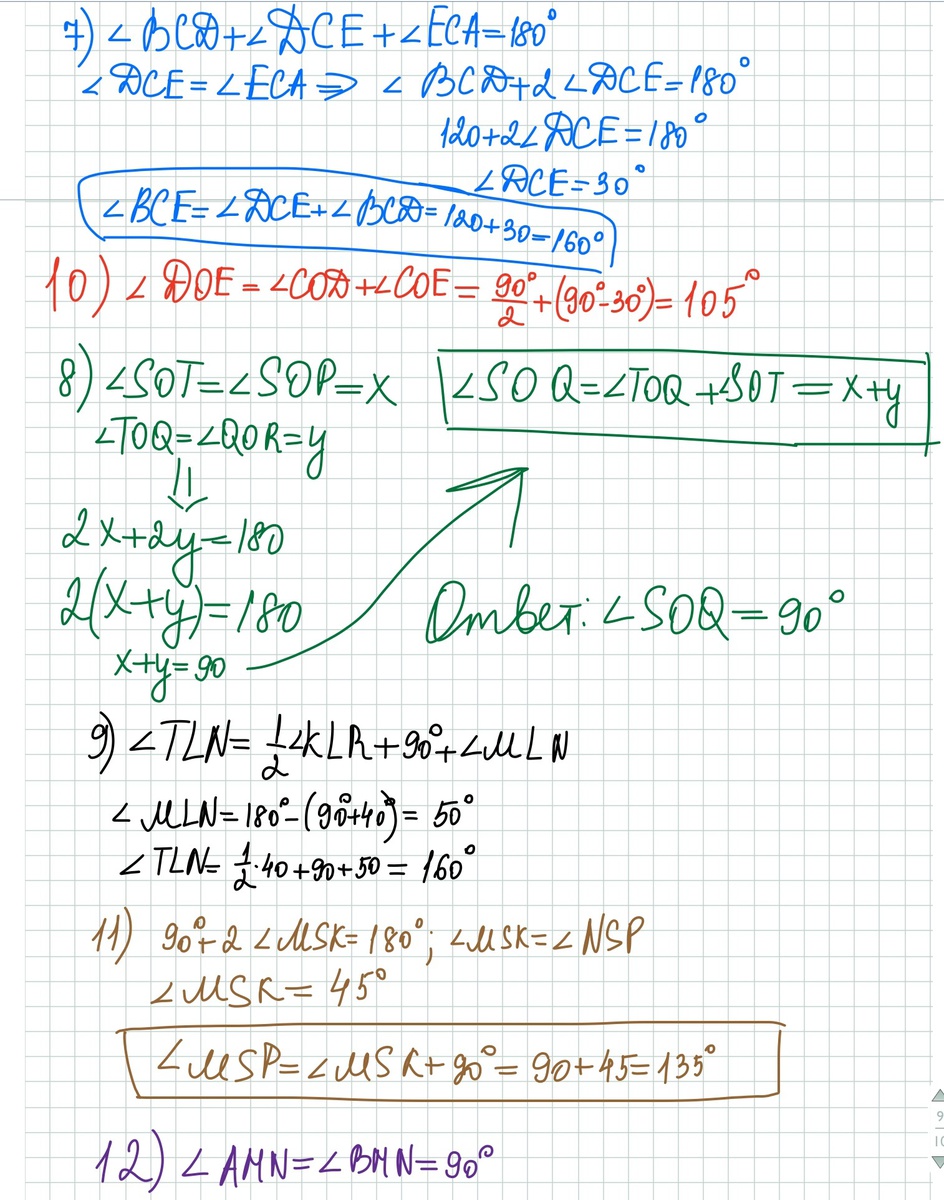 7) ∠BCD+∠DCE+∠ECA=180°
∠DCE=∠ECA⇒ ∠BCD+2∠DCE=180°
120+2∠DCE=180°
∠DCE=30°
∠BCE=∠DCE+∠BCD=120+30=160°
10) ∠DOE=∠COD+∠COE=90°/2+(90°-30°)=105°
8) ∠SOT=∠SOP=x
∠SOQ=∠TOQ+∠SOT=x+y
∠TOQ=∠QOR=y
⇓
2x+2y=180
2(x+y)=180
x+y=90
Ответ: ∠SOQ=90°
9) ∠TLN=1/2∠KLR+90°+∠MLN
∠MLN=180°-(90°+40°)=50°
∠TLN=1/2·40+90+50=160°
11) 90°+2∠MSK=180°; ∠MSK=∠NSP
∠MSK=45°
∠MSP=∠MSK+90°=90+45=135°
12) ∠AMN=∠BMN=90°
9
10